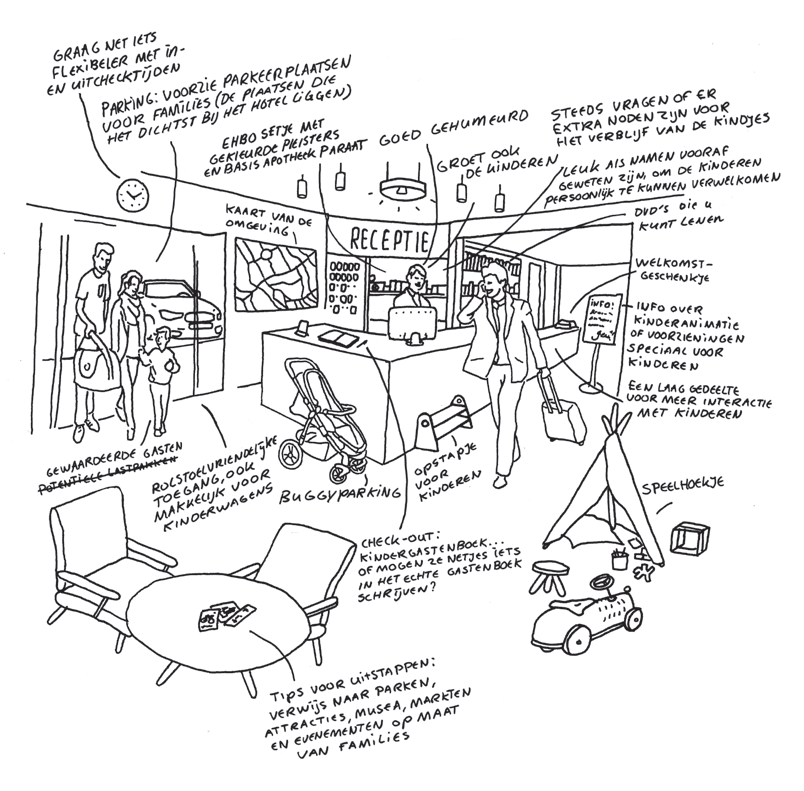 GRAAG NET IETS
FLEXIBELER MET IN-
EN UITCHECKTIJDEN
PARKING: VOORZIE PARKEERPLAATSEN
VOOR FAMILIES (DE PLAATSEN DIE
HET DICHTST BIJ HET HOTEL LIGGEN)
EHBO SETJE MET
GEKLEURDE PLEISTERS
EN BASIS APOTHEEK PARAAT
GOED GEHUMEURD
GROET OOK
DE KINDEREN
STEEDS VRAGEN OF ER
EXTRA NODEN ZIJN VOOR
HET VERBLIJF VAN DE KINDJES
LEUK ALS NAMEN VOORAF
GEWETEN ZIJN, OM DE KINDEREN
PERSOONLIJK TE KUNNEN VERWELKOMEN
DVD'S DIE U
KUNT LENEN
KAART VAN DE
OMGEVING
RECEPTIE
WELKOMST-
GESCHENKJE
INFO:
INFO OVER
KINDERANIMATIE
OF VOORZIENINGEN
SPECIAAL VOOR
KINDEREN
EEN LAAG GEDEELTE
VOOR MEER INTERACTIE
MET KINDEREN
GEWAARDEERDE GASTEN
POTENTIELE LASTPAKKEN
ROLSTOELVRIENDELIJKE
TOEGANG, OOK
MAKKELIJK VOOR
KINDERWAGENS
BUGGYPARKING
OPSTAPJE
VOOR
KINDEREN
SPEELHOEKJE
CHECK-OUT:
KINDERGASTENBOEK...
OF MOGEN ZE NETJES IETS
IN HET ECHTE GASTENBOEK
SCHRIJVEN?
TIPS VOOR UITSTAPPEN:
VERWIJS NAAR PARKEN,
ATTRACTIES, MUSEA, MARKTEN
EN EVENEMENTEN OP MAAT
VAN FAMILIES